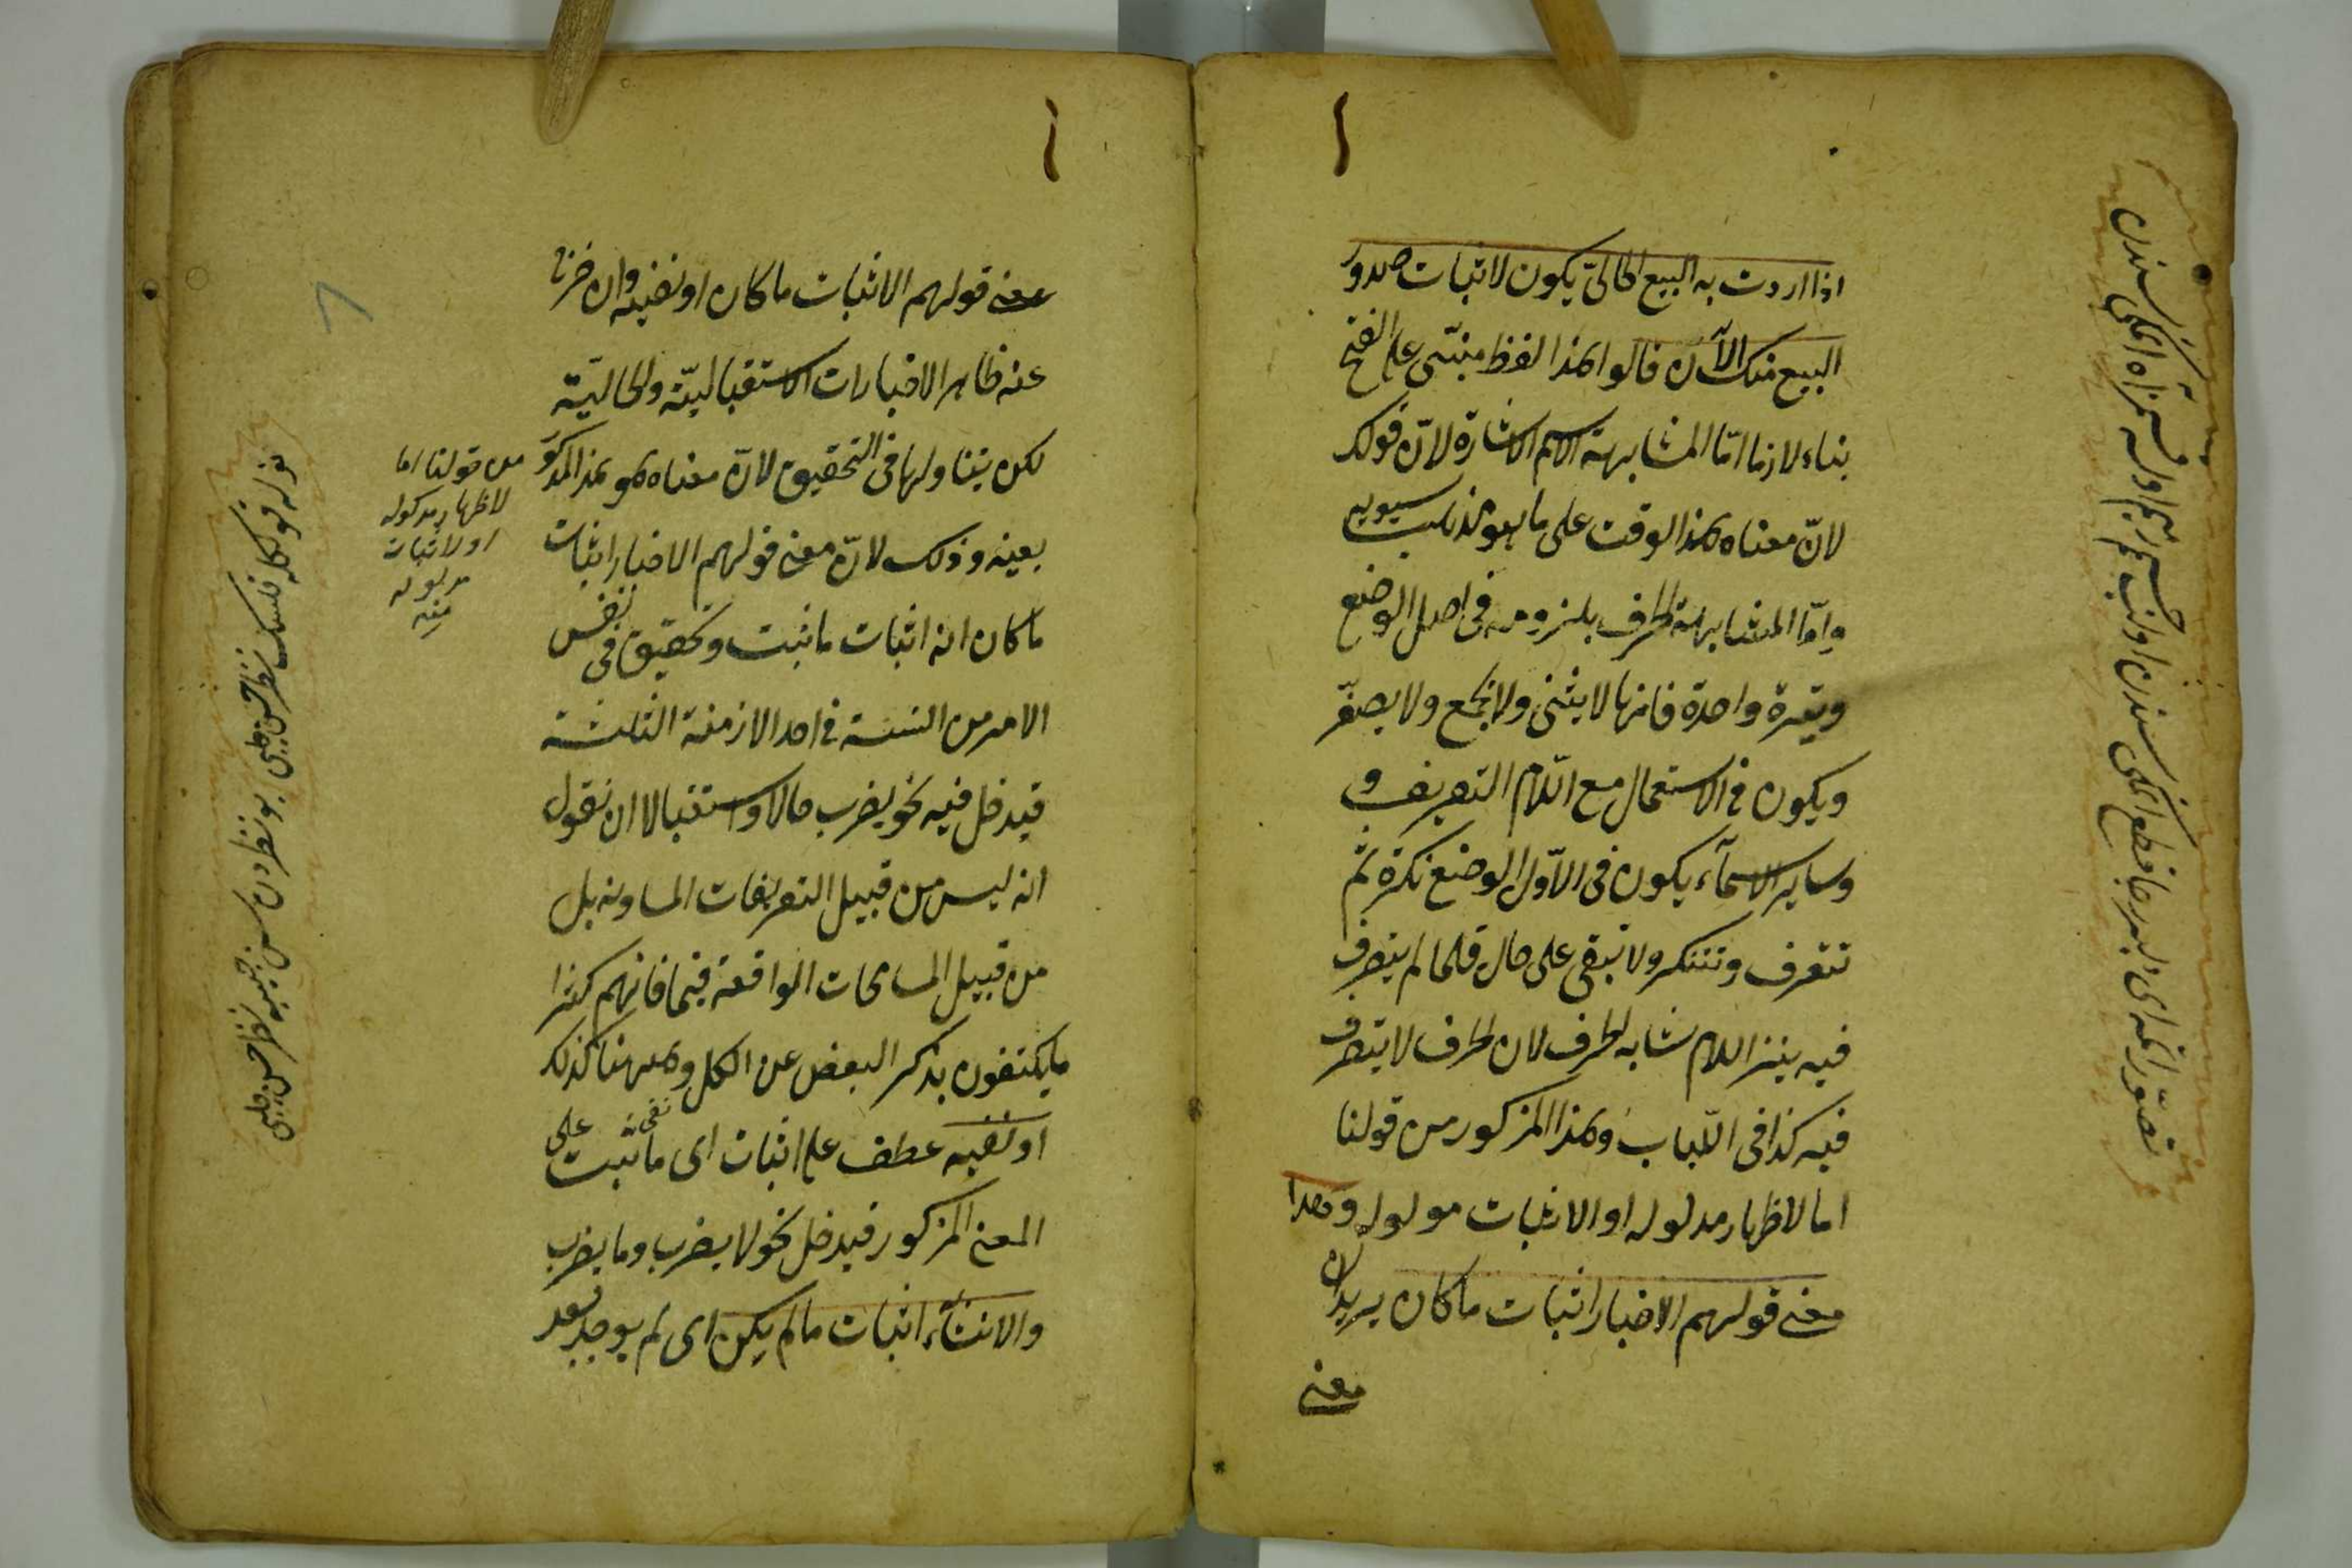 اذا اردت به البيع الحالىّ يكون لاثبات صدور
البيع منك الآن قالوا هذا لفظ مبنىّ على الفتح
بناء لازما امّا لمشابهة الاسم الاشارة لانّ قولك
لانّ معناه هذا الوقت على ما هو مذهب سيبويه
وامّا المشابهة لحرف بلزومه فى اصل الوضع
واحدة فانها لا يثنى ولا يجمع ولا يصغّر
ويكون فى الاستعمال مع اللّام التعريف و
وساير الاسمآء يكون فى الاوّل الوضع نكرة ثم
تتعرف وتتنكر ولا تبقى على حال فلما لم يتصرف
فيه بنزع اللام شابه لحرف لان لحرف لا يتصرف
فيه كذا فى اللّباب وهذا المذكور من قولنا
اما لاظهار مدلوله او الاثبات مدلوله وهذا
معنى قولهم الاخبار اثبات ما كان يريد ان
معنى
معنى قولهم الاثبات ما كان او نفيه وان خرج
عنه ظاهر الاخبارات الاستقباليّة والحاليّة
لكن يتناولها فى التحقيق لانّ معناه هو هذا المذكو
بعينه وذلك لانّ معنى قولهم الاخبار اثبات
ما كان انه اثبات ما ثبت وتحقيق فى نفس
الامر من النسبة فى احد الازمنة الثلثة
فيدخل فيه نحو يضرب حالا واستقبالا ان نقول
انه ليس من قبيل التعريفات المساويه بل
من قبيل المسامحات الواقعة فيما فانهم كثيرا
ما يكتفون بذكر البعض عن الكل وههنا كذلك
او نفيه عطف على اثبات اى نفى ما ثبت على
المعنى المذكور فيدخل نحو لا يضرب وما يضرب
والانشاء اثبات ما لم يكن اى لم يوجد بعد
من قولنا اما
لاظهار مدلوله
او لاثبات
مدلوله
منه